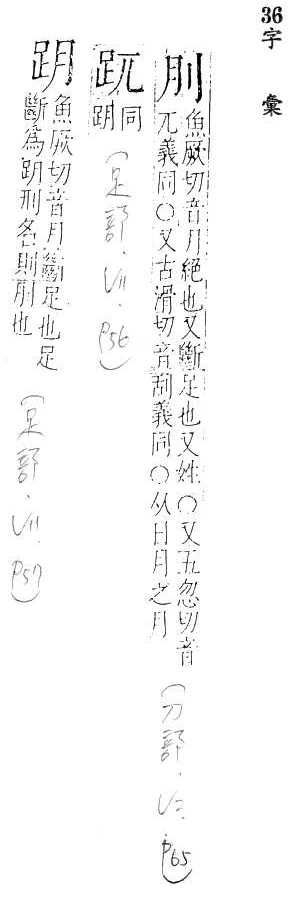 36字彙
刖
魚厥切音月絕也又斷足也又姓○又五忽切音
兀義同○又古滑切音刮義同○从日月之月
(刀部.V2.P65)
趴同
跀
(足部.V11.P56)
跀
魚厥切音月斷足也足
斷為跀刑名則刖也
(足部.V11.P57)